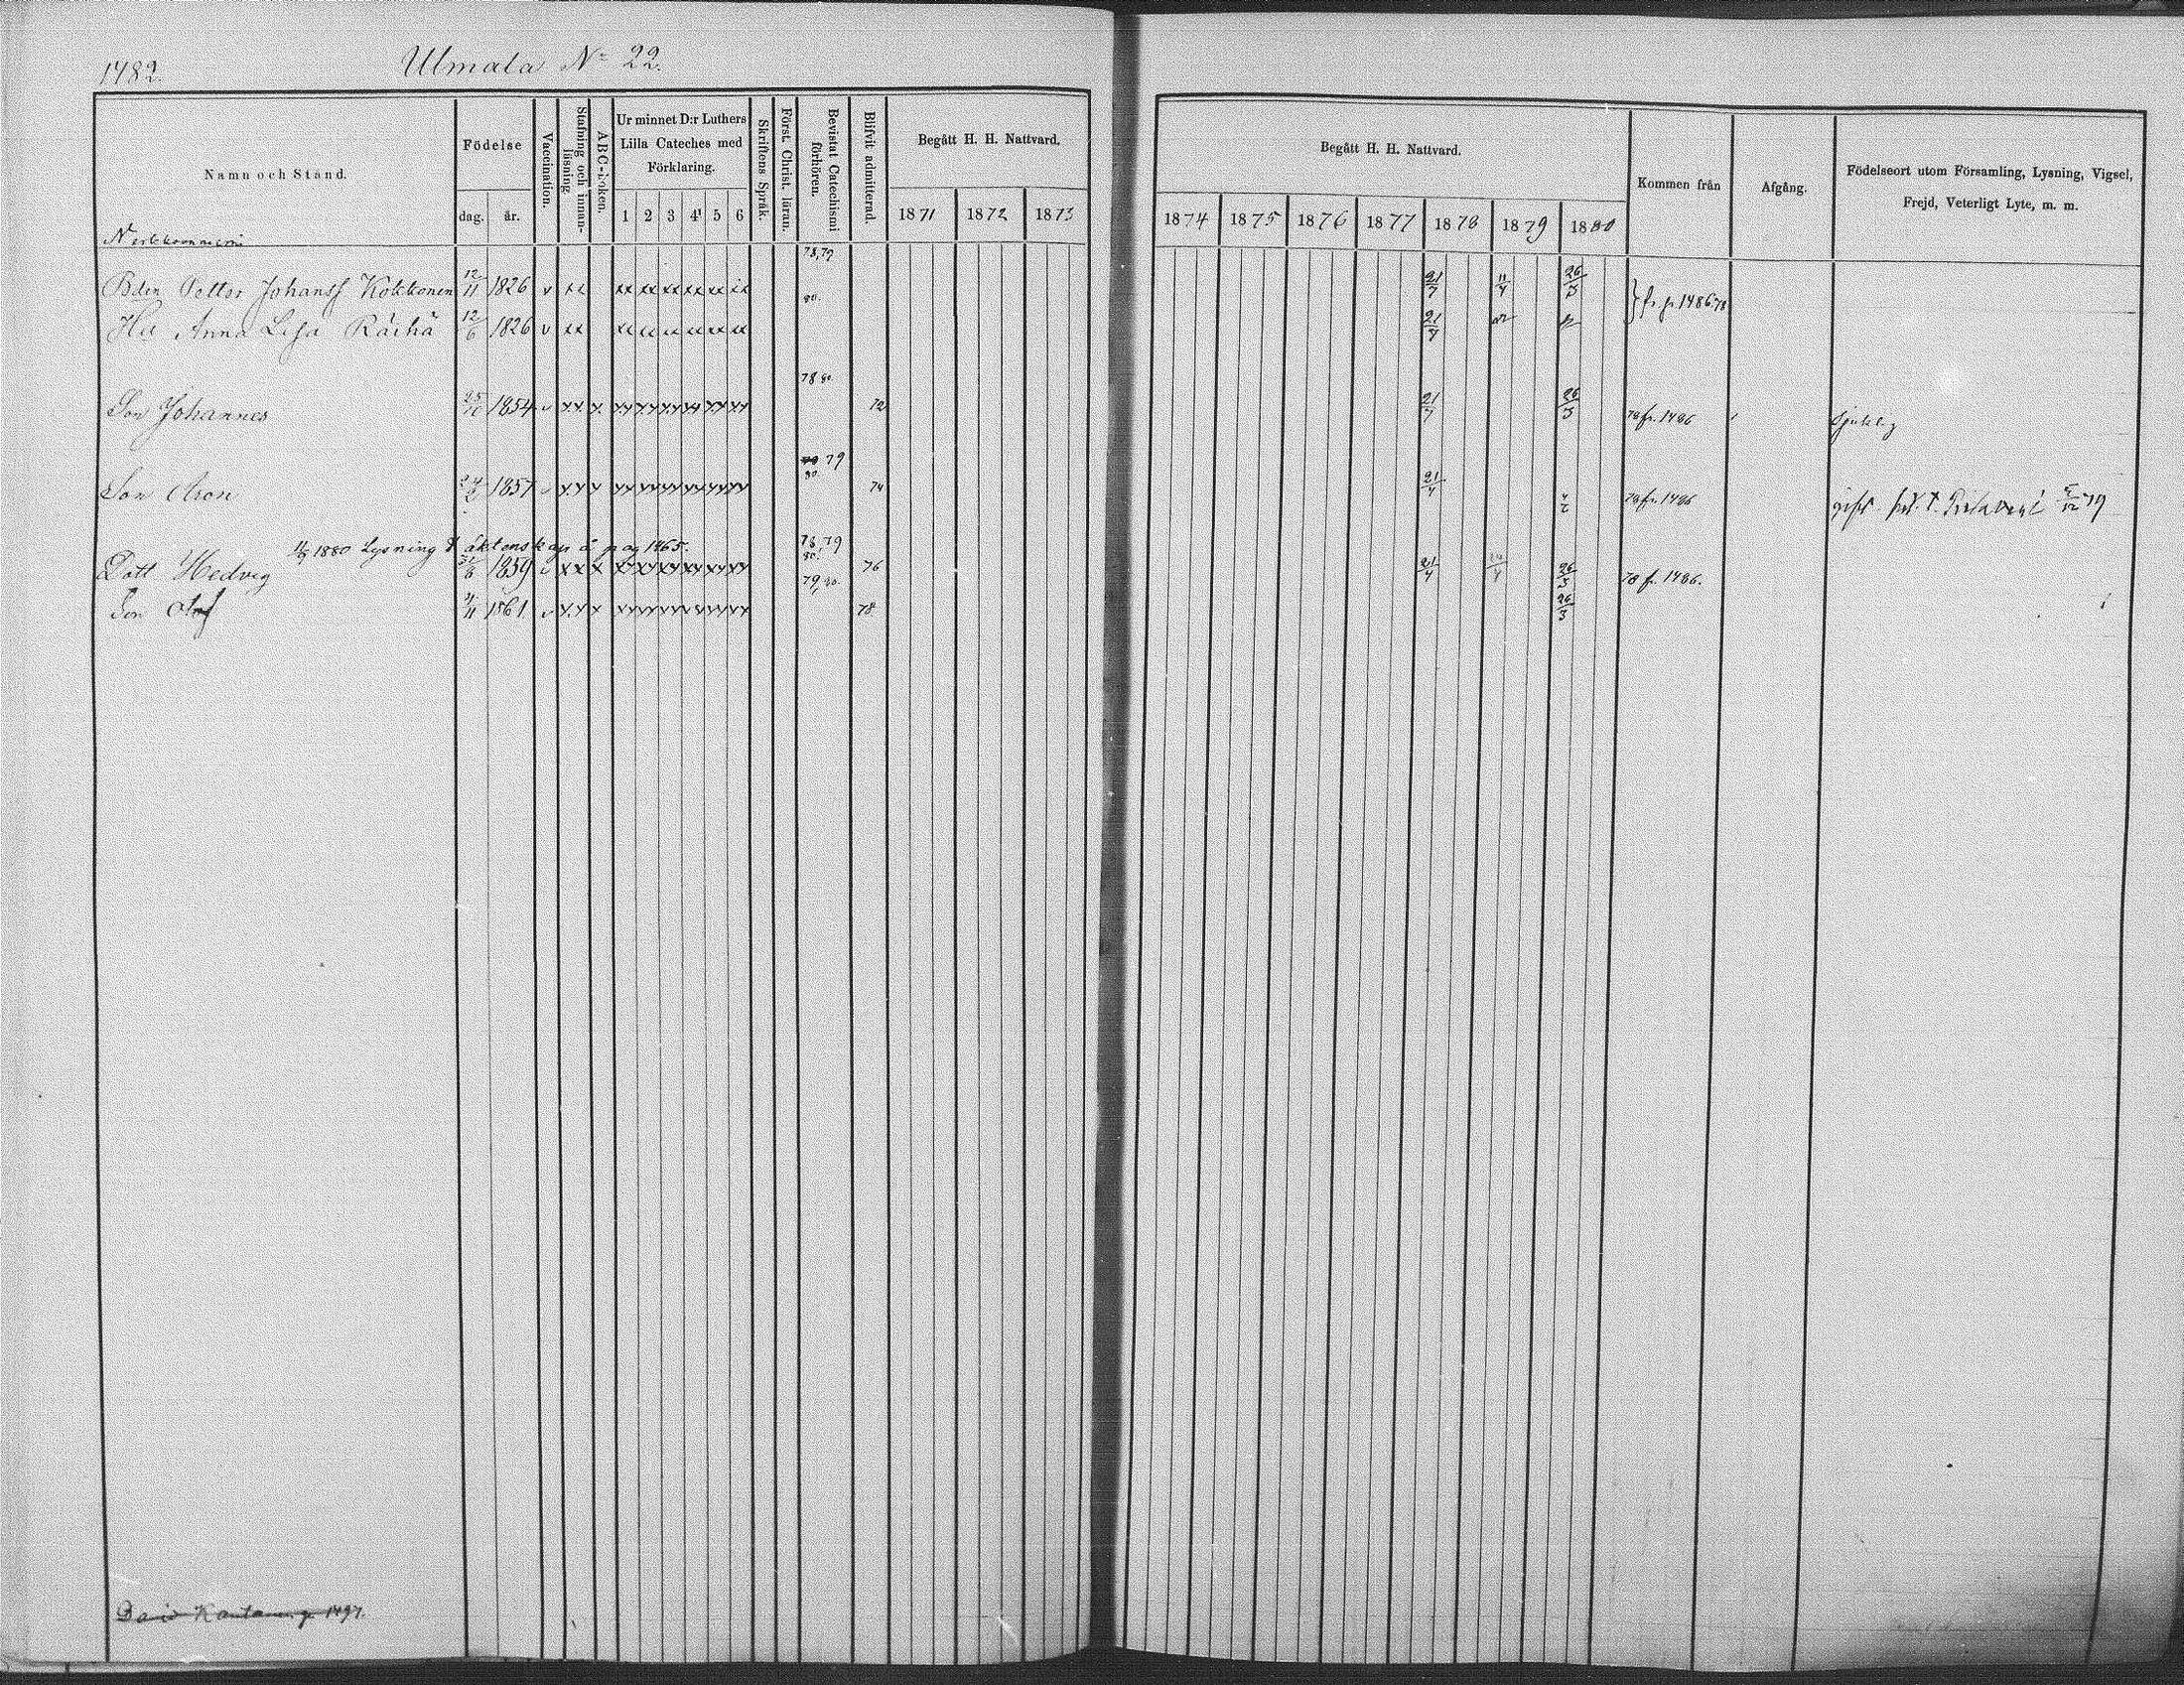 1482.
Ulmala No 22.
Namn och Stånd.
Födelse
dag. år.
Vaccination.
Stafning och innan-läsning
ABC-boken.
Ur minnet D:r Luthers
Lilla Cateches med
Förklaring.
1 2 3 4 5 6
Skriftens Språk.
Först. Christ. läran.
Bevistat Catechismi förhören.
Blifvit admitterad.
Begått H. H. Nattvard.
1871 1872 1873
Begått H. H. Nattvard.
1874 1875 1876 1877 1878 1879 1880
Kommen från
Afgång.
Födelseort utom Församling, Lysning, Vigsel,
Frejd, Veterligt Lyte, m. m.
78,79
Bdn Petter Johansf Kokkonen 12/11 1826 v xx xx xx xx xx xx xx 80. 21/7 11/4 26/3 } fr. p. 1486 78
Hu Anna Lisa Räihä 12/6 1826 v xx xx xx xx xx xx xx 21/7
78 80.
Son Johannes 25/10 1854 v xx x xx xx xx xx xx xx 72 21/7 26/3 78 fr. 1486 Sjuklig
79
80.
Son Aron 1857 v xx x xx xx xx xx xx xx 74 21/7 78 fr. 1486 gift 79
1880 Lysning t äktenskap å pag 1465.
78,79
80.
Dott Hedvig 1859 v xx x xx xx xx xx xx xx 76 21/7 26/3 78 fr. 1486.
79, 80.
Son Olof 1861 v xx x xx xx xx xx xx xx 78 26/3
David p. 1497.